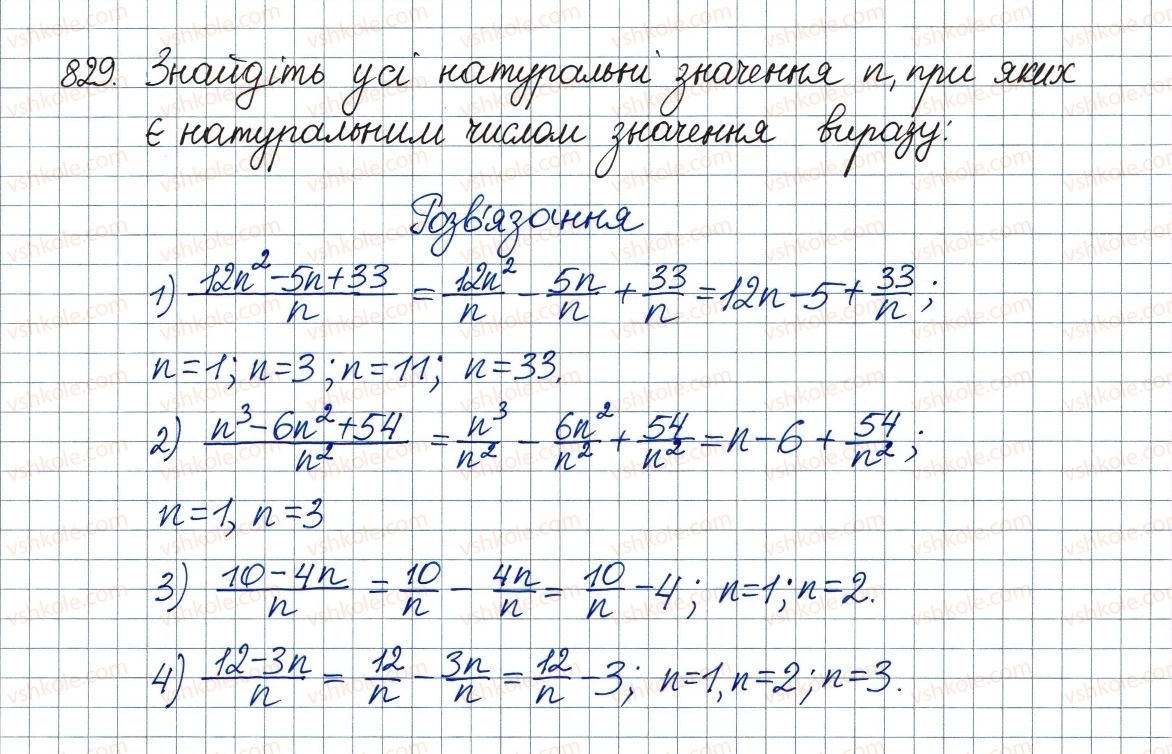 829. Знайдіть усі натуральні значення n, при яких
є натуральним числом значення виразу:
Розв'язання
1) (12n²-5n+33)/n = 12n²/n - 5n/n + 33/n = 12n-5+33/n;
n=1; n=3; n=11; n=33.
2) (n³-6n²+54)/n² = n³/n² - 6n²/n² + 54/n² = n-6+54/n²;
n=1, n=3
3) (10-4n)/n = 10/n - 4n/n = 10/n - 4; n=1; n=2.
4) (12-3n)/n = 12/n - 3n/n = 12/n - 3; n=1, n=2; n=3.
vshkole.com